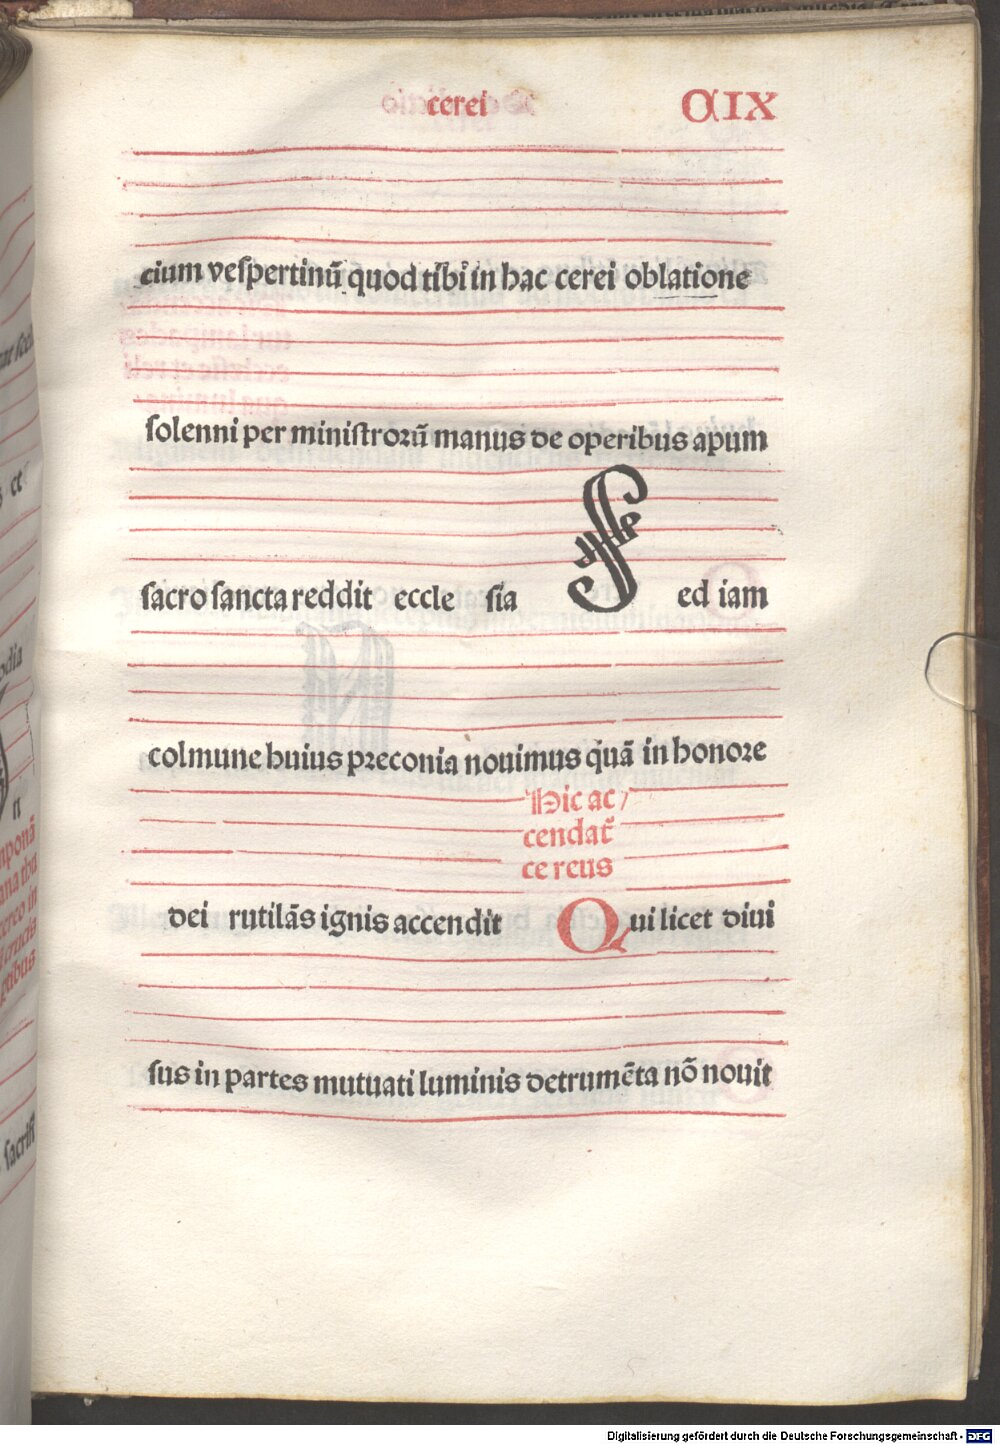 cerei CIX
cium veſpertinū quod tibi in hac cerei oblatione
ſolenni per miniſtrorū manus de operibus apum
ſacro ſancta reddit eccle ſia Sed iam
colmune huius preconia nouimus quā in honore
Hic ac/
cendat᷑
cereus
dei rutilās ignis accendit Qui licet diui
ſus in partes mutuati luminis detrumēta nō nouit
Digitalisierung gefördert durch die Deutsche Forschungsgemeinschaft - DFG